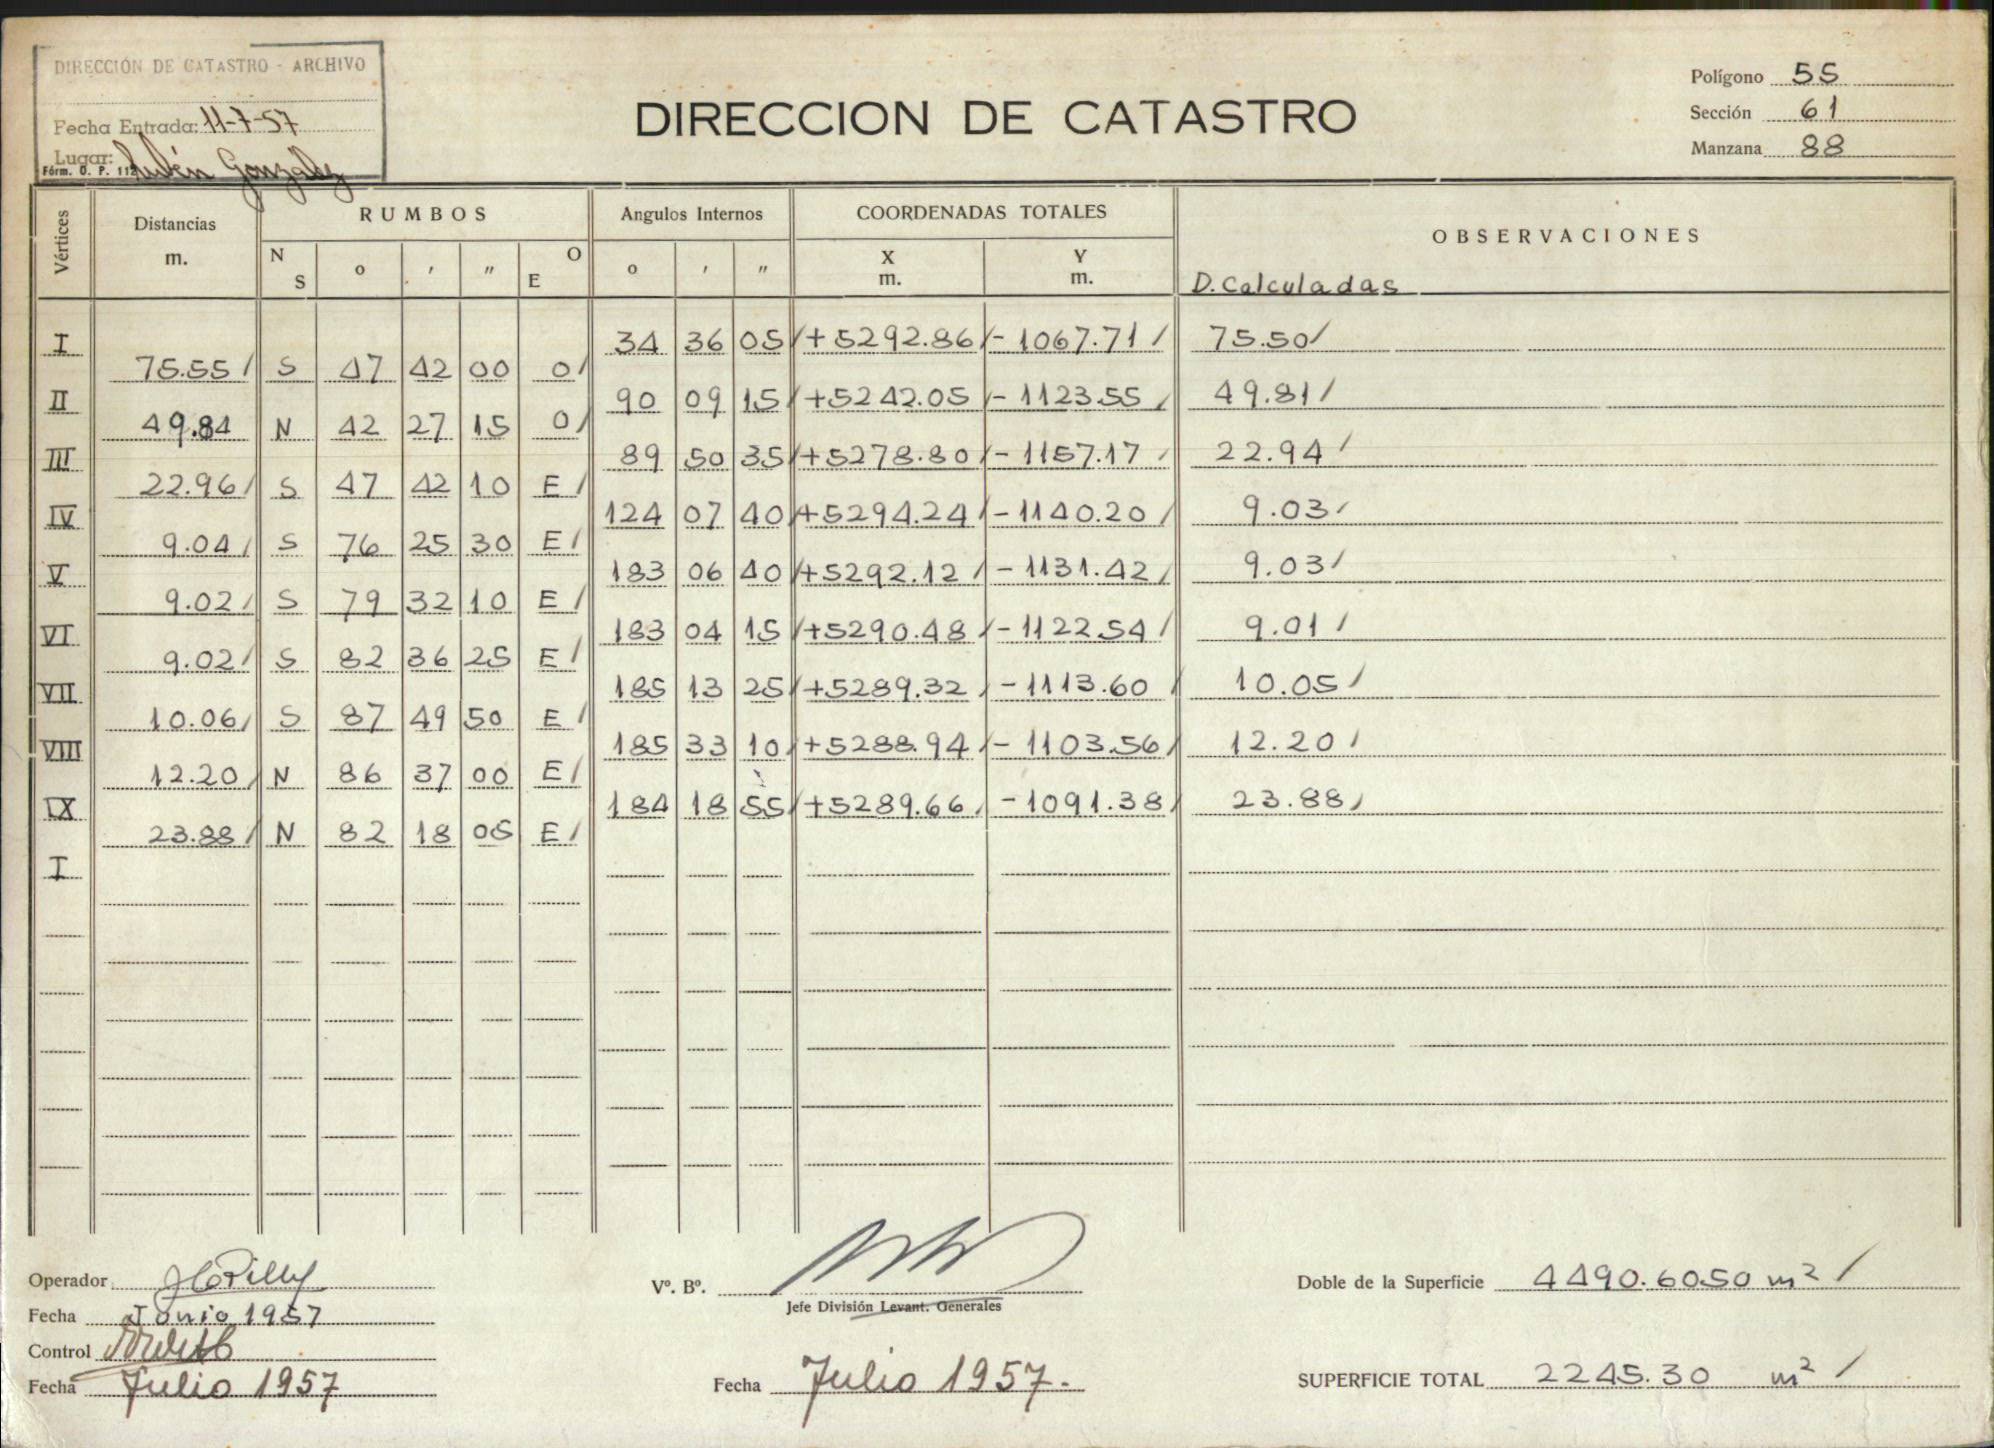 DIRECCIÓN DE CATASTRO - ARCHIVO
Fecha Entrada: 11-7-57
Lugar: Rubén González
Fórm. O. P. 112
DIRECCION DE CATASTRO
Polígono 55
Sección 61
Manzana 88
Vértices Distancias m. RUMBOS Angulos Internos COORDENADAS TOTALES OBSERVACIONES
N S o ' " O E o ' " X m. Y m. D. Calculadas
I 34 36 05 / +5292.86 / -1067.71 / 75.50 /
75.55 / S 47 42 00 O /
II 90 09 15 / +5242.05 / -1123.55 / 49.81 /
49.84 N 42 27 15 O /
III 89 50 35 / +5278.80 / -1157.17 / 22.94 /
22.96 / S 47 42 10 E /
IV 124 07 40 / +5294.24 / -1140.20 / 9.03 /
9.04 / S 76 25 30 E /
V 183 06 40 / +5292.12 / -1131.42 / 9.03 /
9.02 / S 79 32 10 E /
VI 183 04 15 / +5290.48 / -1122.54 / 9.01 /
9.02 / S 82 36 25 E /
VII 185 13 25 / +5289.32 / -1113.60 / 10.05 /
10.06 / S 87 49 50 E /
VIII 185 33 10 / +5288.94 / -1103.56 / 12.20 /
12.20 / N 86 37 00 E /
IX 184 18 55 / +5289.66 / -1091.38 / 23.88 /
23.88 / N 82 18 05 E /
I
Operador
Fecha Junio 1957
Control
Fecha Julio 1957
Vº. Bº.
Jefe División Levant. Generales
Fecha Julio 1957.
Doble de la Superficie 4490.6050 m² /
SUPERFICIE TOTAL 2245.30 m² /